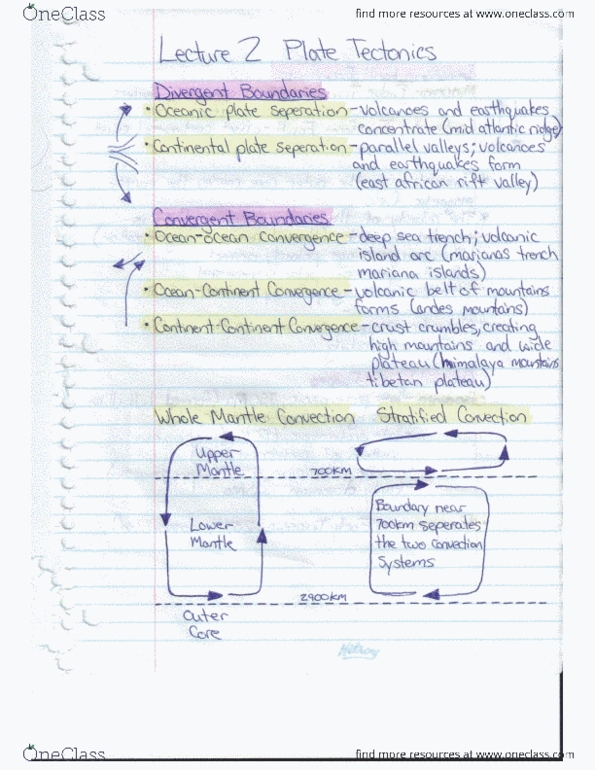 OneClass
find more resources at www.oneclass.com
Lecture 2 Plate Tectonics
Divergent Boundaries
• Oceanic plate seperation - volcances and earthquakes
concentrate (mid atlantic ridge)
• Continental plate seperation - parallel valleys; volcances
and earthquakes form
(east african rift valley)
Convergent Boundaries
• Ocean-ocean convergence - deep sea trench; volcanic
island arc (marianas trench
mariana islands)
• Ocean-Continent Convergence - volcanic belt of mountains
forms (andes mountains)
• Continent-Continent Convergence - crust crumbles, creating
high mountains and wide
plateau (himalaya mountains
tibetan plateau)
Whole Mantle Convection Stratified Convection
Upper
Mantle
700km
Lower
Mantle
Boundary near
700km seperates
the two convection
systems
2900km
Outer
Core
OneClass
find more resources at www.oneclass.com